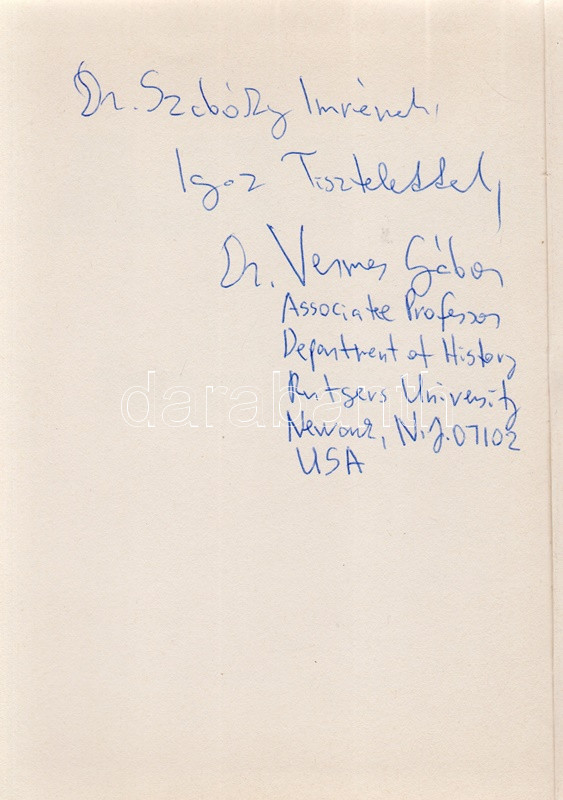 Dr. Szabóky Imrének,
Igaz Tisztelettel,
Dr. Vermes Gábor
Associate Professor
Department of History
Rutgers University
darabanth
Newark, N.J. 07102
USA